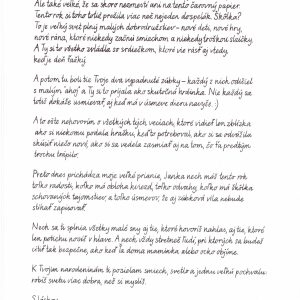 Ale také veľké, že sa skoro nezmestí ani na tento čarovný papier.
Tento rok si toho totiž prežila viac než nejeden dospelák. Škôlka?
To je veľký svet plný malých dobrodružstiev - nové deti, nové hry,
nové rána, ktoré niekedy začnú smiechom a niekedy troškou slzičky.
A Ty si to všetko zvládla so srdiečkom, ktoré vie rásť aj vtedy,
keď je deň ťažký.
A potom, tu boli tie Tvoje dva vypadnuté zúbky - každý z nich odišiel
s malým 'ahoj' a Ty si to prijala ako skutočná hrdinka. Nie každý sa
totiž dokáže usmievať, aj keď má v úsmeve dieru navyše. :)
A to ešte nehovorím o všetkých tých veciach, ktoré videl len zblízka
ako si niekomu podala hračku, keď to potreboval, ako si sa odvážila
skúsiť niečo nové, ako si sa vedela zasmiať aj na tom, čo ťa predtým
trochu trápilo.
Preto dnes prichádza moje veľké prianie, Janka nech máš tento rok
toľko radosti, koľko má obloha hviezd, toľko odvahy, koľko má škôlka
schovaných tajomstiev, a toľko úsmevov, že aj zúbková víla nebude
stíhať zapisovať.
Nech sa ti splnia všetky malé sny aj tie, ktoré hovoríš nahlas, aj tie, ktoré
len potichu nosíš v hlave. A nech vždy stretneš ľudí, pri ktorých sa budeš
cítiť tak bezpečne, ako keď ťa doma maminka alebo ocko objíme.
K Tvojim narodeninám ti posielam smiech, svetlo a jednu veľkú pochvalu:
robíš svetu viac dobra, než si myslíš.